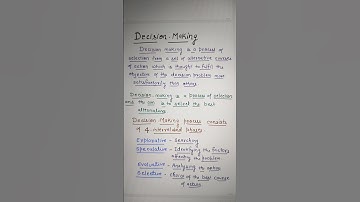 Decision Making
Decision making is a process of
selection from a set of alternative courses
of action which is thought to fulfil the
objective of the decision problem more
satisfactorily than others.
Decision making is a process of selection
and the aim is to select the best
alternative
Decision Making process consists
of 4 interrelated phases
Explorative - Searching
Speculative - Identifying the factors
affecting the problem
Evaluative - Analysing the option
Selective - Choice of the best course
of action